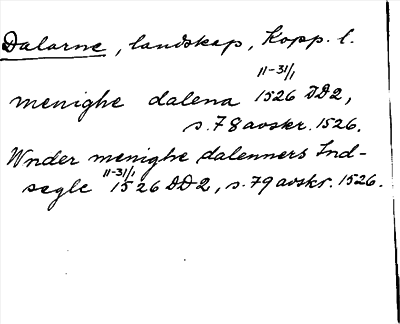 Dalarne, landskap, Kopp. l.
11-31/1
menighe dalena 1526 DD2,
s. 78 avskr. 1526.
Wnder menighe dalenners Ind-
11-31/1
segle 1526 DD2, s. 79 avskr. 1526.